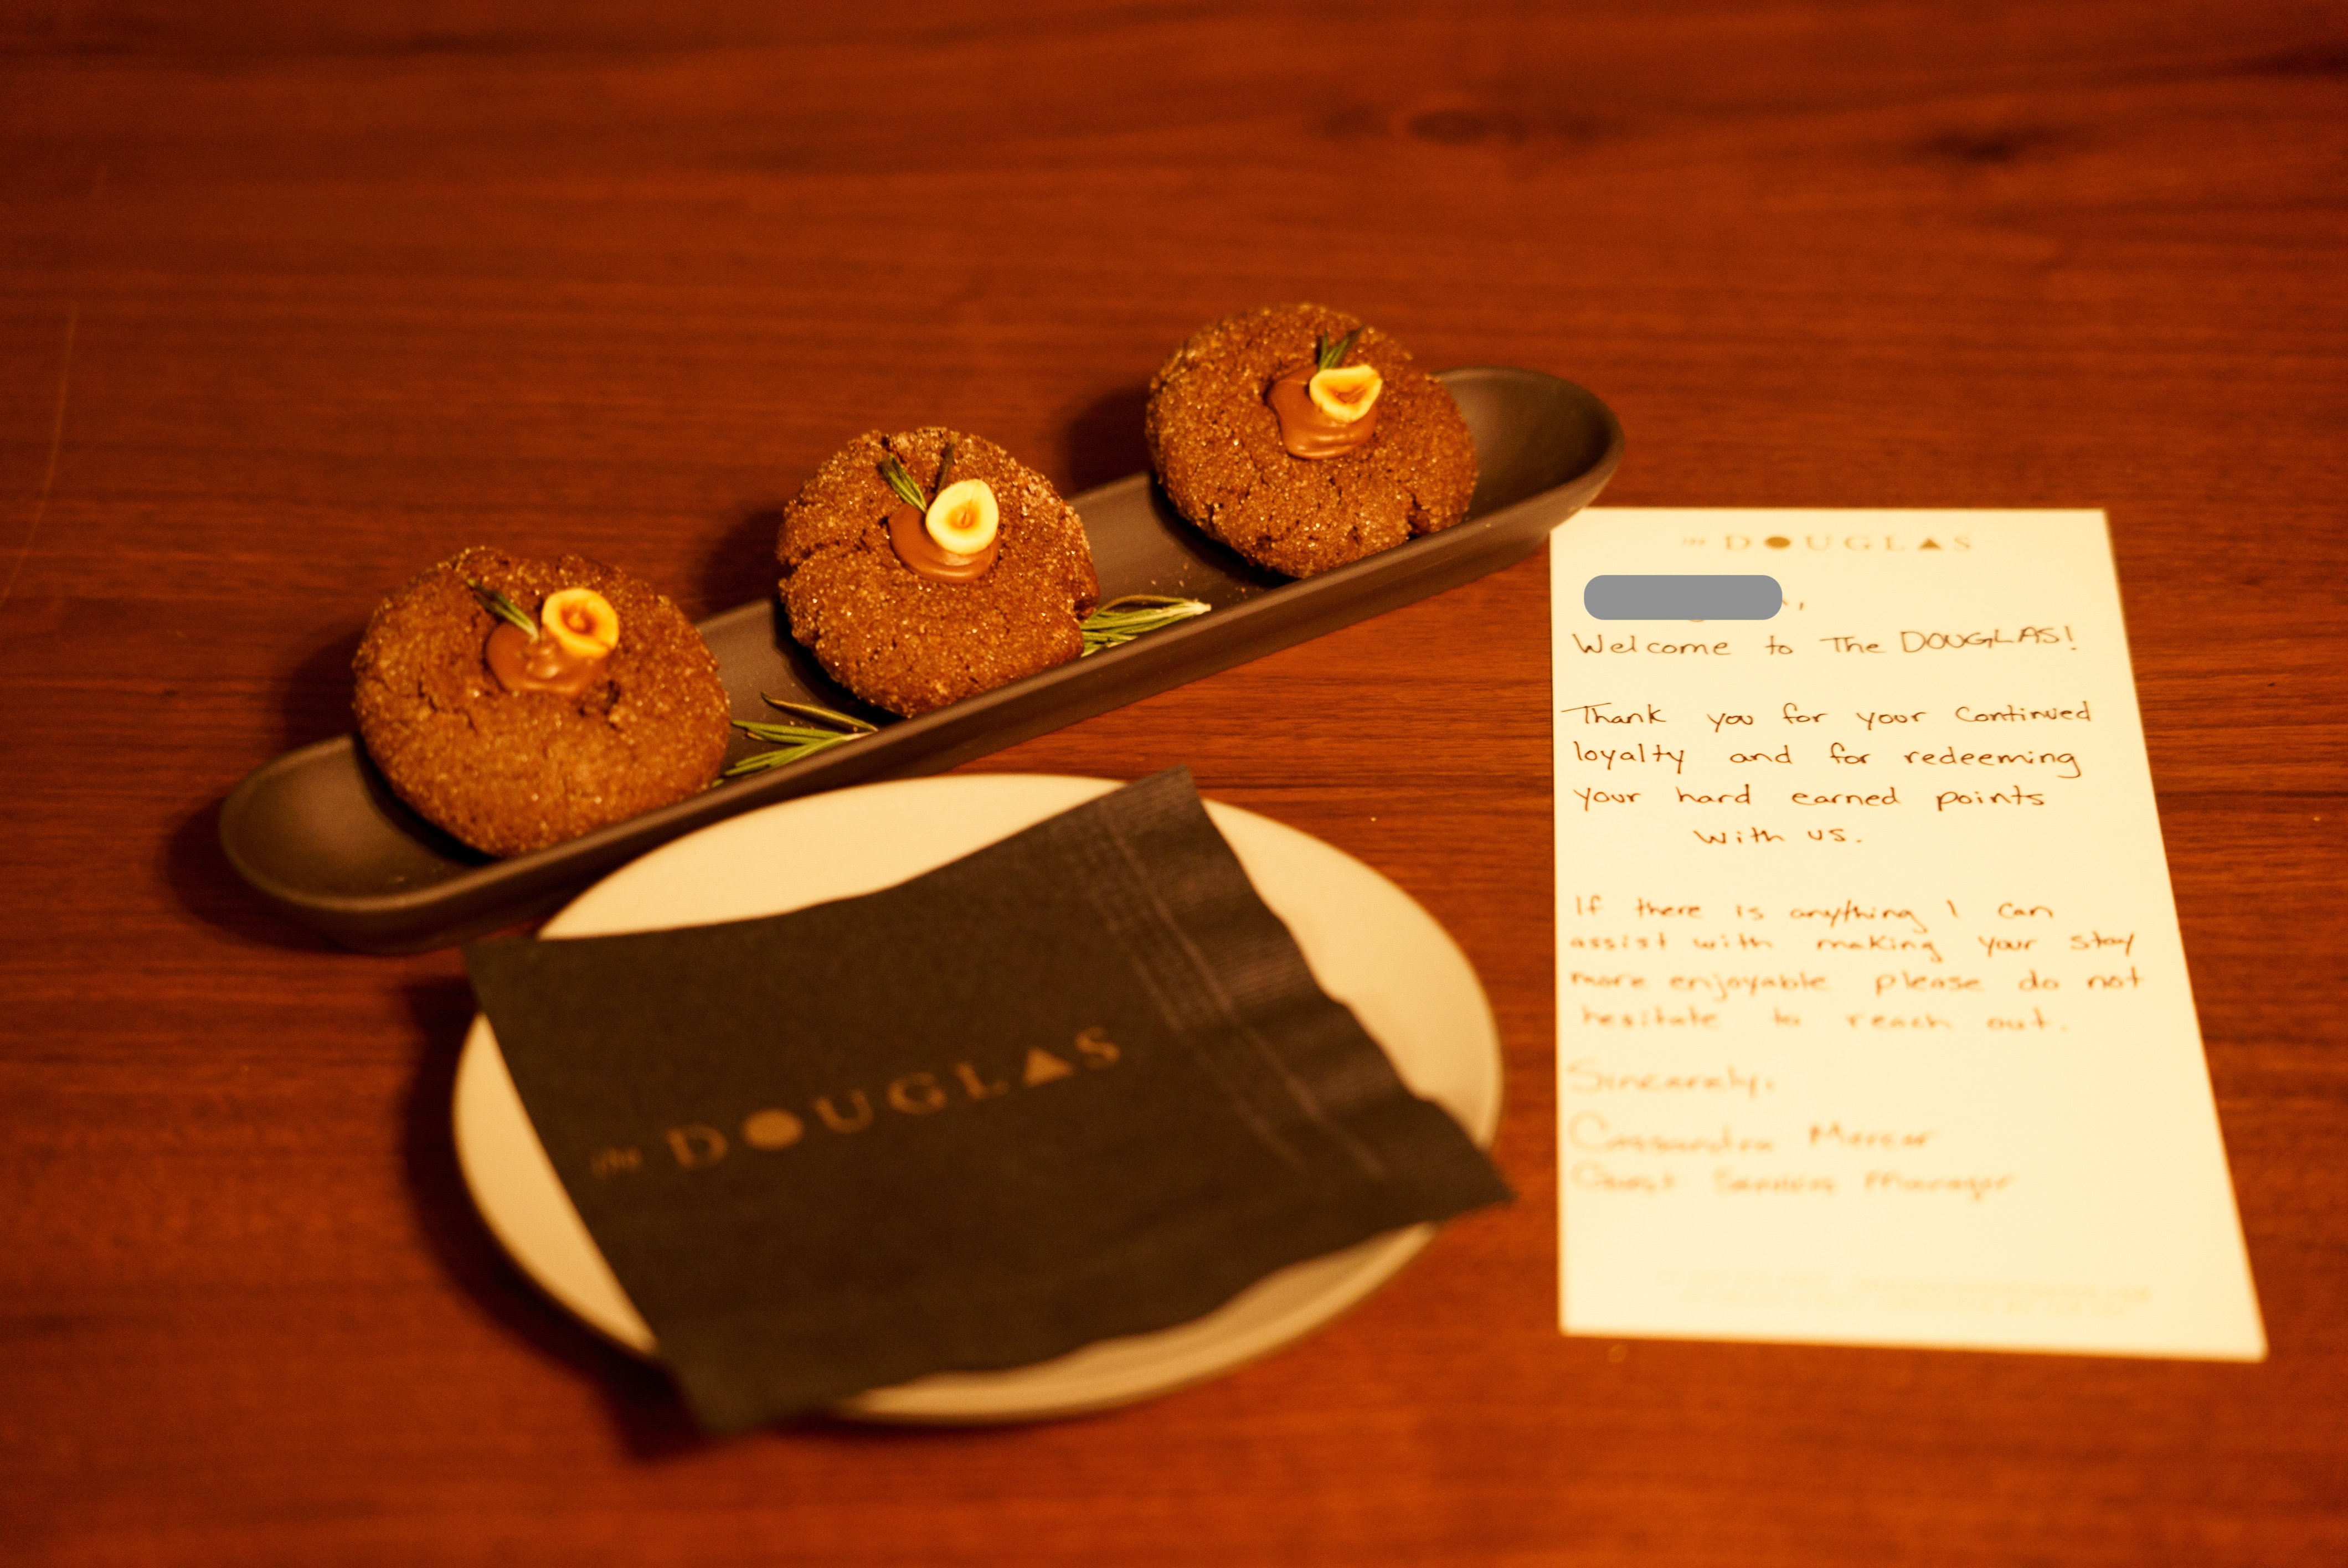 the DOUGLAS
Welcome to The DOUGLAS!
Thank you for your continued
loyalty and for redeeming
your hard earned points
with us.
If there is anything I can
assist with making your stay
more enjoyable please do not
hesitate to reach out.
Sincerely,
Cassandra Mercer
Guest Services Manager
the DOUGLAS